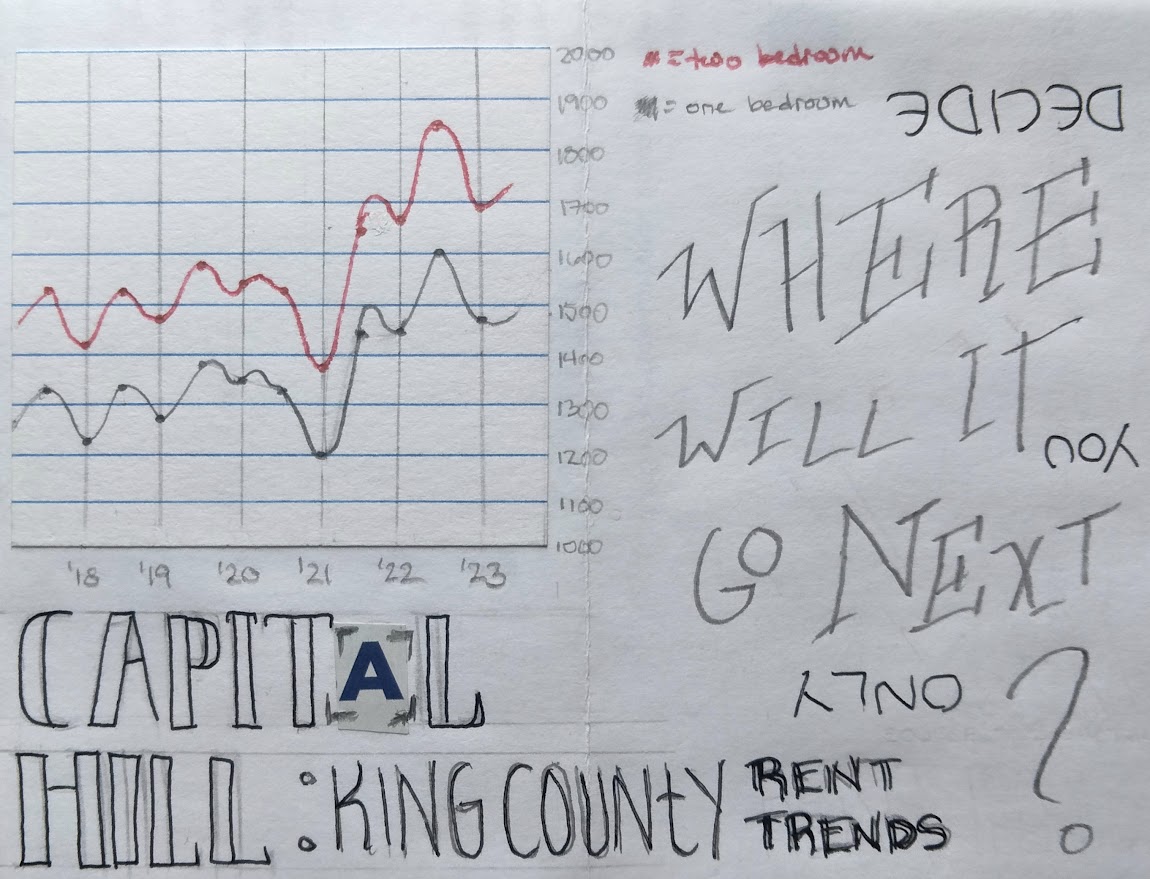 2000
1900
1800
1700
1600
1500
1400
1300
1200
1100
1000
'18 '19 '20 '21 '22 '23
= two bedroom
= one bedroom
DECIDE
WHERE
WILL IT
YOU
GO NEXT
ONLY
?
CAPITAL
HILL : KING COUNTY RENT
TRENDS